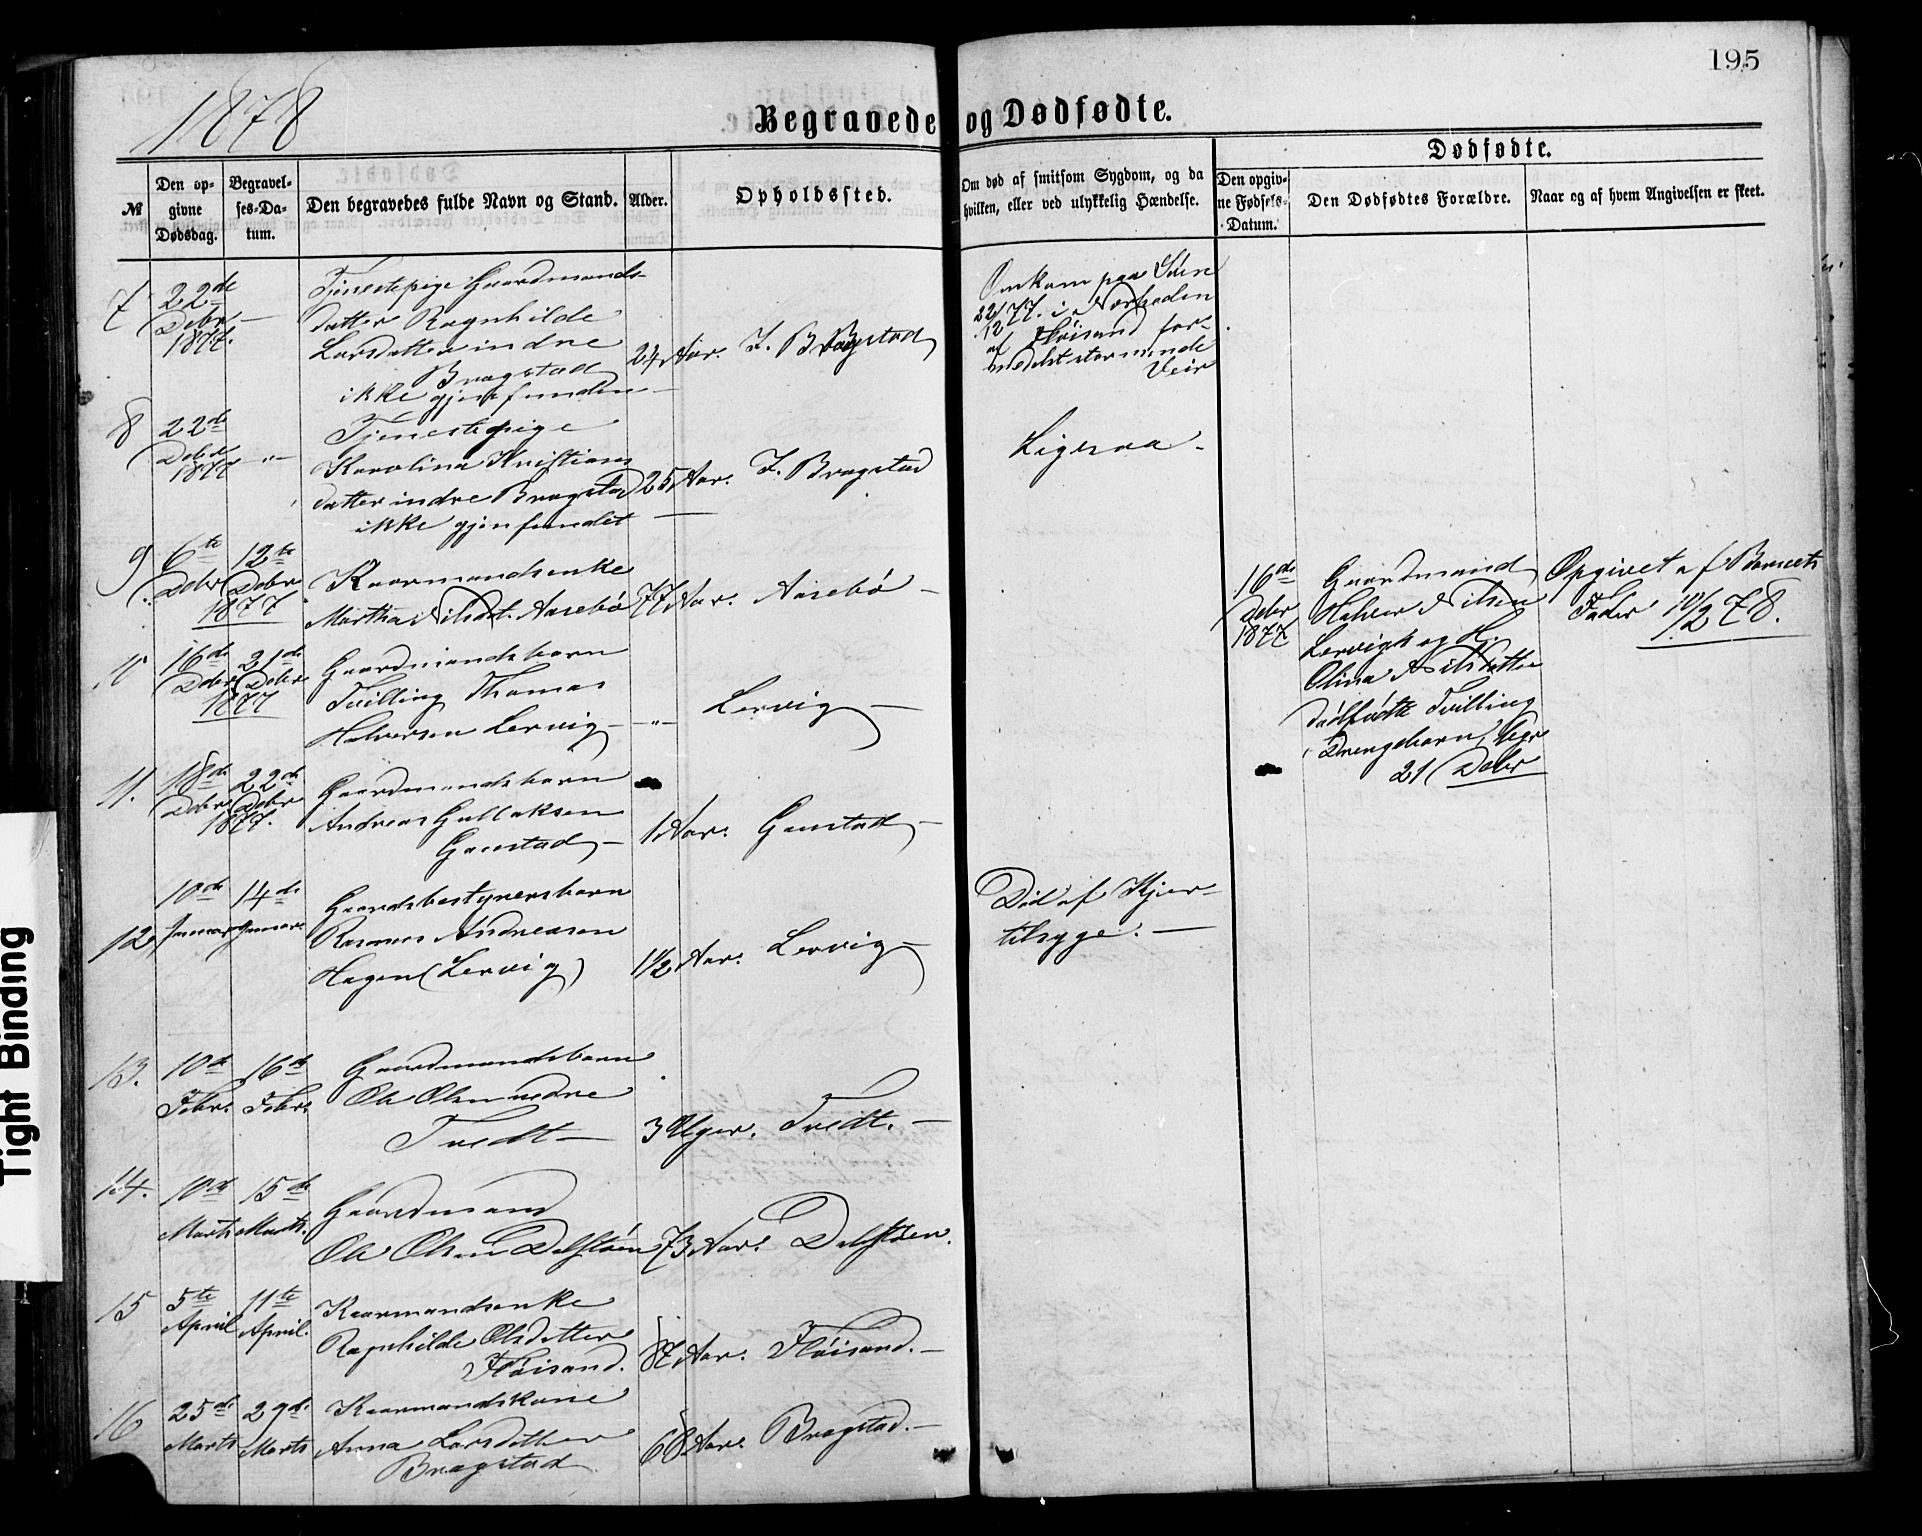 195
1878
Begravede og Dødfødte.
Dødfødte.
№
Den opgivne Dødsdag.
Begravelses-Datum.
Den begravedes fulde Navn og Stand.
Alder.
Opholdssted.
Om død af smitsom Sygdom, og da hvilken, eller ved ulykkelig Hændelse.
Den opgivne Fødsels-Datum.
Den Dødfødtes Forældre.
Naar og af hvem Angivelsen er skeet.
7 22de Debr 1877. —
Tjenestepige Gaardmands-
datter Ragnhilde
Larsdatter indre
Bragstad
ikke gjenfunden —
24 Aar. I. Bragstad
Omkom paa Søen
22/12 77. i Nærheden
af Fløisand for-
medelst stormende
Veir
8 22de Debr 1877 —"—
Tjenestepige
Karolina Kristians
datter indre Bragstad
ikke gjenfundet —
25 Aar. I. Bragstad
Ligesaa.
9 6te Debr 12te Debr 1877
Kaarmandsenke
Martha Nilsdt. Aasebø
77 Aar. Aasebø —
16de Debr 1877
Gaardmand
Halvor Nilsen
Lervigk og H.
Olina Nilsdatter
dødfødte Tvilling
Drengebarn, begr
21 Debr
Opgivet af Barnets
Fader 10/2 78.
10 16de Debr 21de Debr 1877
Gaardmandsbarn
Tvilling Thomas
Halvorsen Lervig —
—"— Lervig —
11. 18de Debr 22de Debr 1877.
Gaardmandsbarn
Andreas Gullaksen
Gaustad —
1 Aar. Gaustad —
12 10de Januar 14de Januar
Gaardsbestyrersbarn
Rasmus Andreasen
Hagen (Lervig)
1½ Aar. Lervig —
Død af Hjer-
tilsyge. —
13. 10de Febr. 16de Febr.
Gaardmandsbarn
Ole Olsen nedre
Tvedt —
3 Uger. Tvedt. —
14. 10de Marts 15de Marts.
Gaardmand
Ole Olsen Dalstøen
73 Aar. Dalstøen.
15 5te April 11te April.
Kaarmandsenke
Ragnhilde Olsdatter
Fløisand.
87 Aar. Fløisand. —
16 25de Marts 29de Marts
Kaarmandskone
Anna Larsdatter
Bragstad
68 Aar. Bragstad. —
Tight Binding